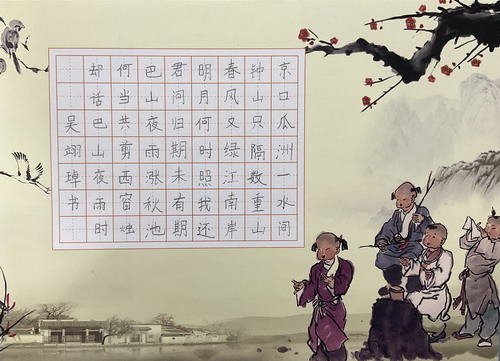 京口瓜洲一水间
钟山只隔数重山
春风又绿江南岸
明月何时照我还
君问归期未有期
巴山夜雨涨秋池
何当共剪西窗烛
却话巴山夜雨时
吴翊琸书